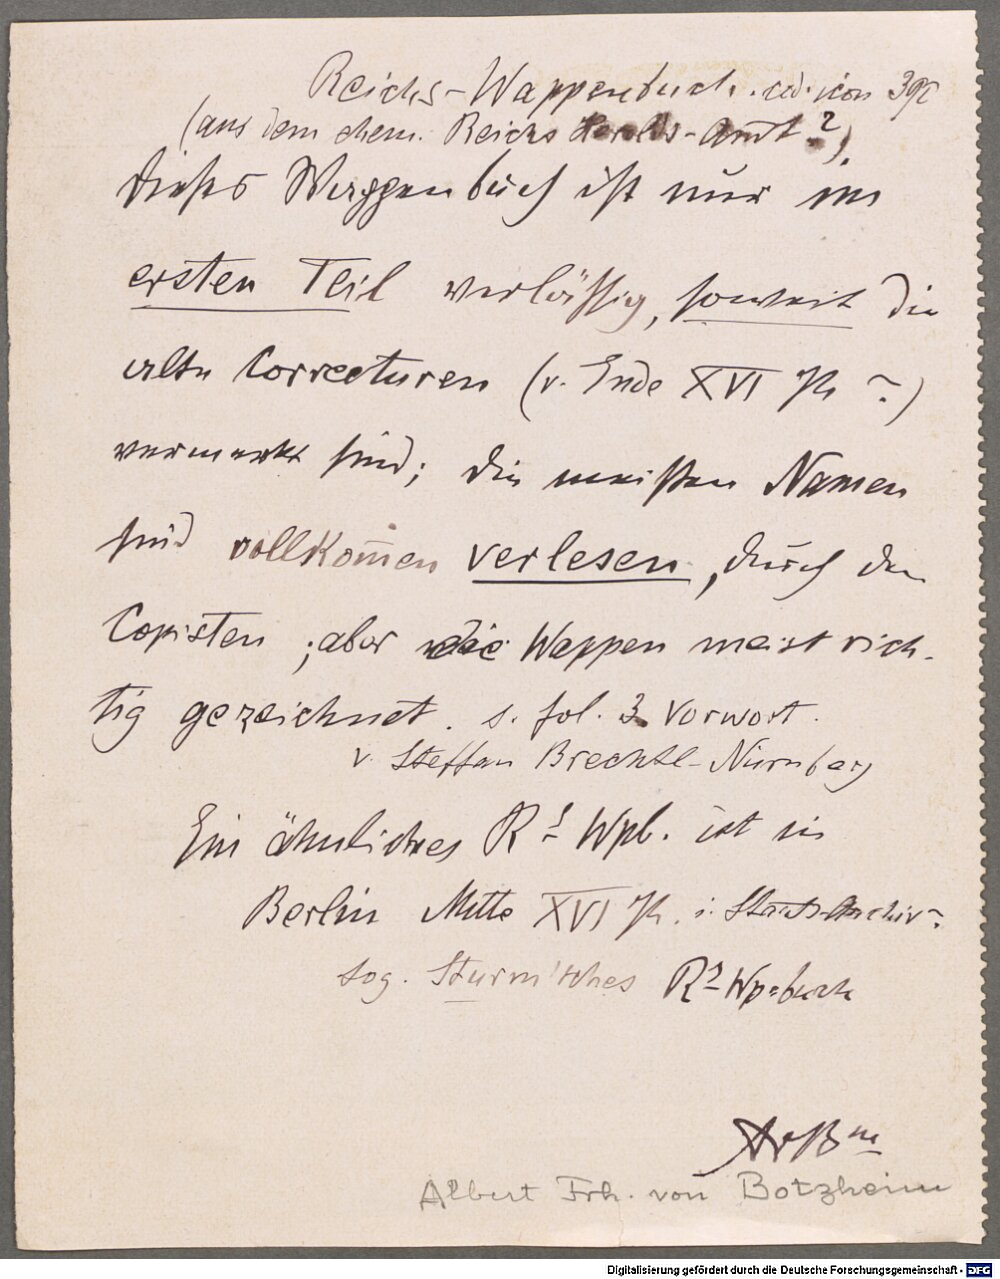 Reichs-Wappenbuch. cod. icon 392
(aus dem ehem. Reichs Herolds-Amt?).
Dieses Wappenbuch ist nur im
ersten Teil verlässig, soweit die
alten Correcturen (v. Ende XVI Jh ?)
vermerkt sind; die meisten Namen
sind vollkom̅en verlesen, durch den
Copisten; aber die Wappen meist rich-
tig gezeichnet. s. fol. 3 Vorwort.
v. Steffan Brechtl-Nürnberg
Ein ähnliches Rs Wpb. ist in
Berlin Mitte XVI Jh. i. Staats-Archiv?
sog. Sturm'sches Rs Wp=buch
AvBm
Albert Frh. von Botzheim
Digitalisierung gefördert durch die Deutsche Forschungsgemeinschaft - DFG